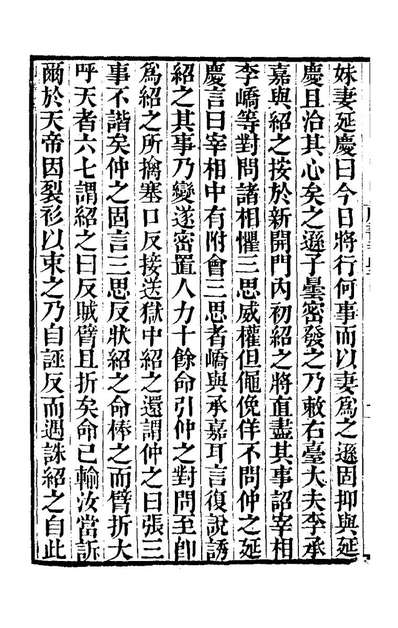 妹妻延慶曰今日將行何事而以妻爲之遜固抑與延
慶且洽其心矣之遜子曇密發之乃敕右臺大夫李承
嘉與紹之按於新開門內初紹之將直盡其事詔宰相
李嶠等對問諸相懼三思威權但僶俛佯不問仲之延
慶言曰宰相中有附會三思者嶠與承嘉耳言復說誘
紹之其事乃變遂密置人力十餘命引仲之對問至卽
爲紹之所擒塞口反接送獄中紹之還謂仲之曰張三
事不諧矣仲之固言三思反狀紹之命棒之而臂折大
呼天者六七謂紹之曰反賊臂且折矣命已輸汝當訴
爾於天帝因裂衫以束之乃自誣反而遇誅紹之自此